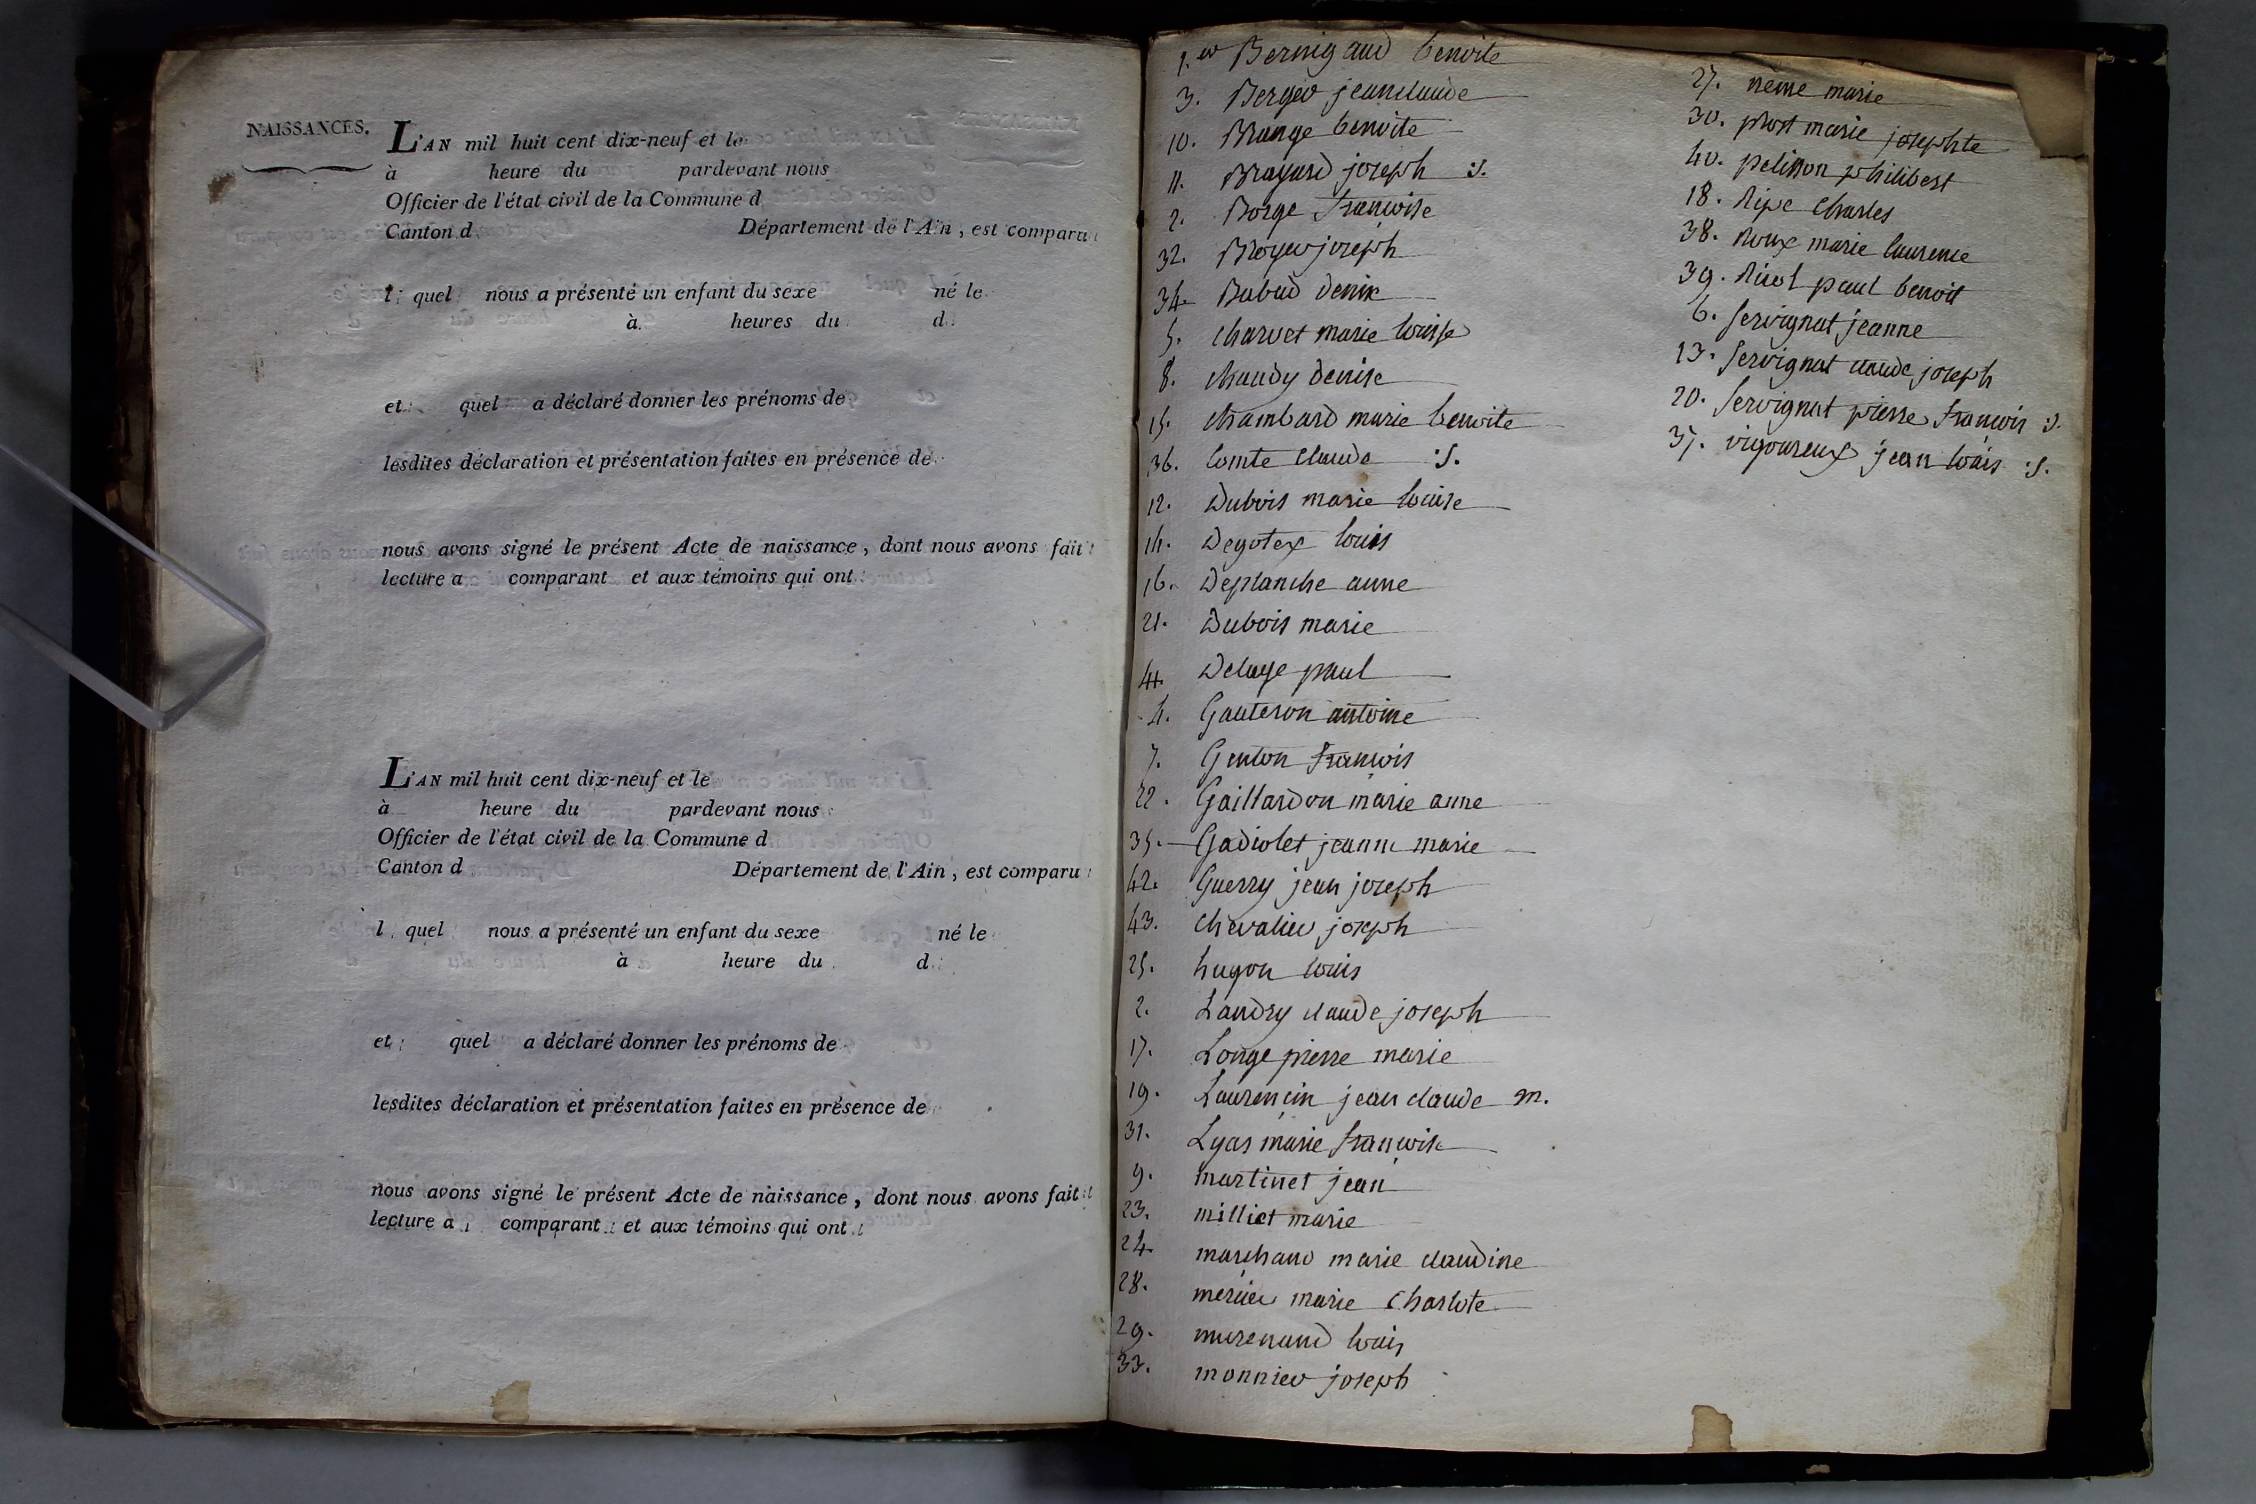 NAISSANCES.
L'AN mil huit cent dix-neuf et le
à heure du pardevant nous
Officier de l'état civil de la Commune d
Canton d Département de l'Ain, est comparu
l quel nous a présenté un enfant du sexe né le
à heures du d
et quel a déclaré donner les prénoms de
lesdites déclaration et présentation faites en présence de
nous avons signé le présent Acte de naissance, dont nous avons fait
lecture a comparant et aux témoins qui ont
L'AN mil huit cent dix-neuf et le
à heure du pardevant nous
Officier de l'état civil de la Commune d
Canton d Département de l'Ain, est comparu
l quel nous a présenté un enfant du sexe né le
à heure du d
et quel a déclaré donner les prénoms de
lesdites déclaration et présentation faites en présence de
nous avons signé le présent Acte de naissance, dont nous avons fait
lecture a comparant et aux témoins qui ont
1.er Bernigaud benoite
3. Berger jean claude
10. Brange benoite
11. Brayard joseph :S.
2. Borge francoise
32. Broyer joseph
34. Babad denis
5. charvet marie louise
8. chaudy denise
15. chambard marie benoite
36. Comte claude :S.
12. Dubois marie louise
14. Degotex louis
16. Deplanche anne
21. Dubois marie
41. Delaye paul
4. Gauteron antoine
7. Genton francois
22. Gaillardon marie anne
35. Gadiolet jeanne marie
42. Guerry jean joseph
43. chevalier joseph
25. hugon louis
2. Landry claude joseph
17. Longe pierre marie
19. Laurencin jean claude m.
31. Lyas marie francoise
9. martinet jean
23. milliet marie
24. marchand marie claudine
28. mercier marie charlote
29. louis
33. monnier joseph
27. neme marie
30. prost marie josephte
40. pelisson philibert
18. Ripe charles
38. Roux marie laurence
39. Ricol paul benoit
6. Servignat jeanne
13. Servignat claude joseph
20. Servignat pierre francois :S.
37. vigoureux jean louis :S.